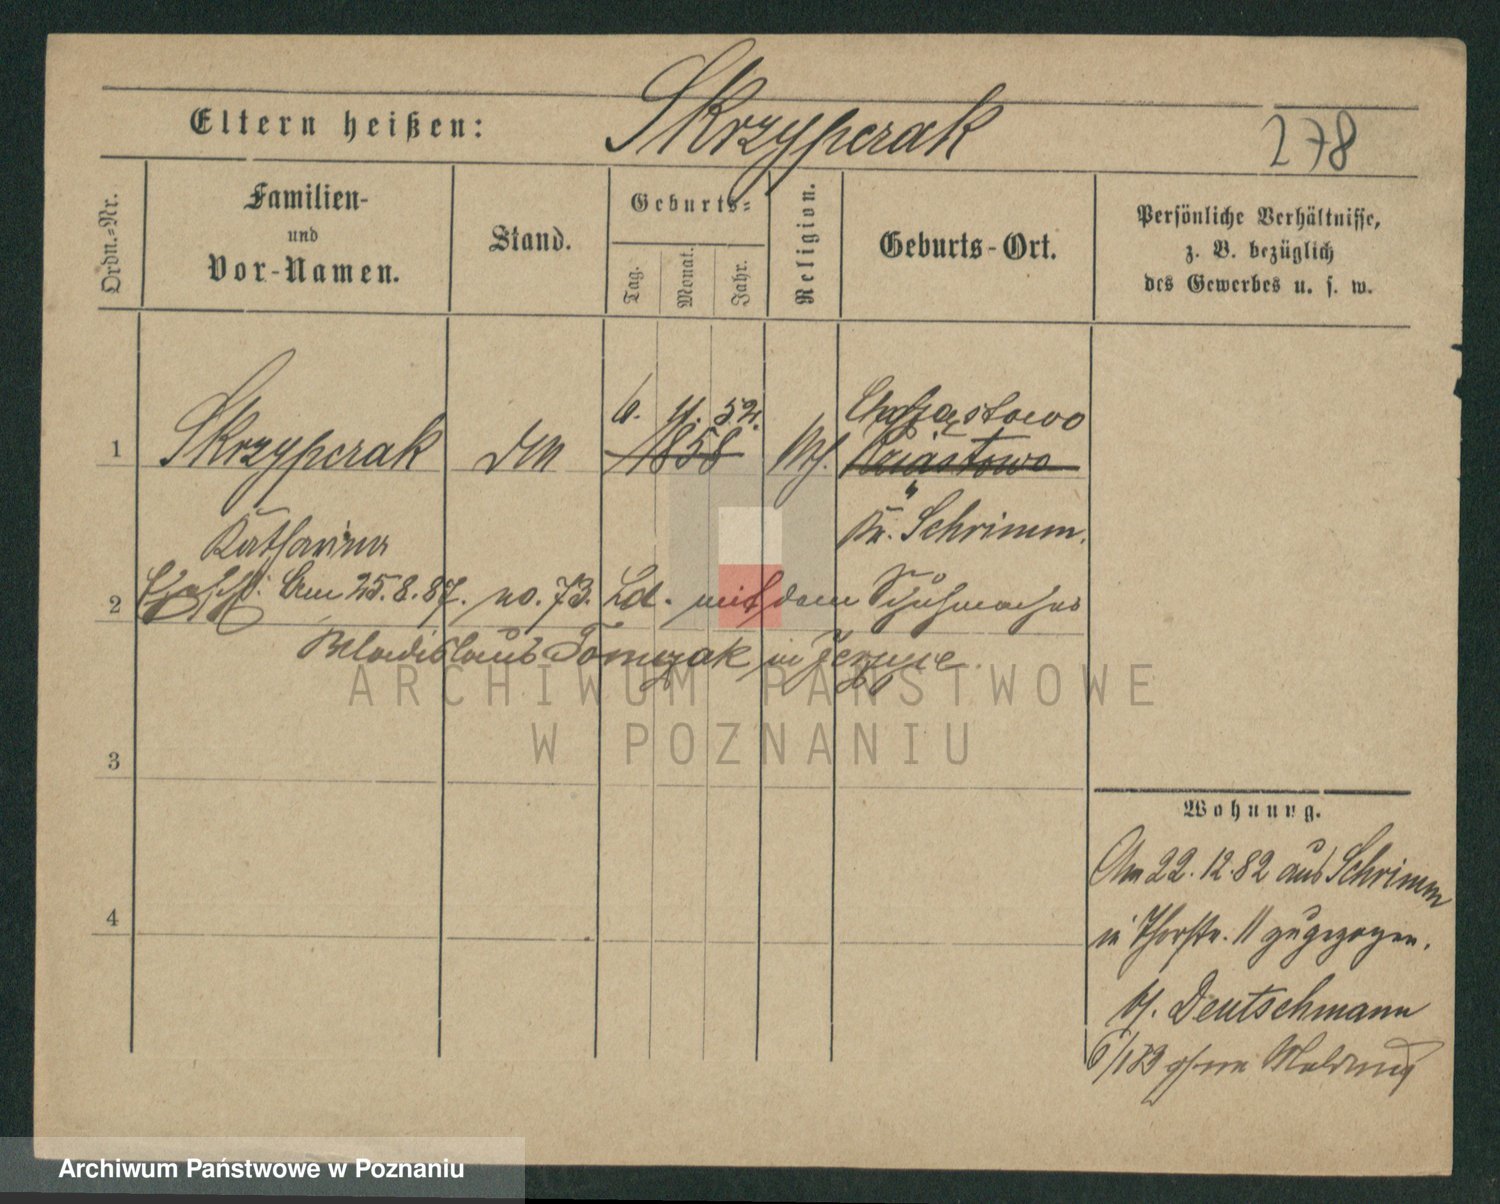 Eltern heißen: Skrzypczak 278
Ordn.=Nr.
Familien-
und
Vor-Namen.
Stand.
Geburts=
Tag.
Monat.
Jahr.
Religion.
Geburts-Ort.
Persönliche Verhältnisse,
z. B. bezüglich
des Gewerbes u. s. w.
6. 11. 52.
1 Skrzypczak 1858
Katharina Kr. Schrimm.
2 Am 25.8.87. no. 73. mit dem Schuhmacher
Wladislaus Tomczak in Jerzyce.
ARCHIWUM PAŃSTWOWE
W POZNANIU
3
4
Wohnung.
Am 22.12.82 aus Schrimm
in Thorstr. 11 zugezogen.
bj. Deutschmann
6/1 83 ohne Meldung
Archiwum Państwowe w Poznaniu